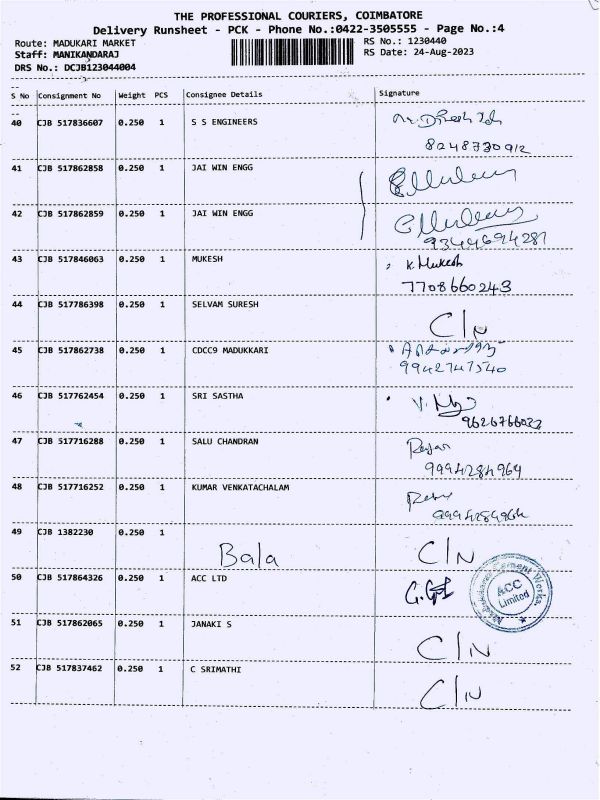 THE PROFESSIONAL COURIERS, COIMBATORE
Delivery Runsheet - PCK - Phone No.:0422-3505555 - Page No.:4
Route: MADUKARI MARKET
RS No.: 1230440
Staff: MANIKANDARAJ
RS Date: 24-Aug-2023
DRS No.: DCJB123044004
S No Consignment No Weight PCS Consignee Details Signature
40 CJB 517836607 0.250 1 S S ENGINEERS
8248730912
41 CJB 517862858 0.250 1 JAI WIN ENGG
42 CJB 517862859 0.250 1 JAI WIN ENGG
9344694287
43 CJB 517846063 0.250 1 MUKESH K. Mukesh
7708660243
44 CJB 517786398 0.250 1 SELVAM SURESH
C/N
45 CJB 517862738 0.250 1 CDCC9 MADUKKARI
9942747540
46 CJB 517762454 0.250 1 SRI SASTHA
9626766022
47 CJB 517716288 0.250 1 SALU CHANDRAN
9994284964
48 CJB 517716252 0.250 1 KUMAR VENKATACHALAM
9994284964
49 CJB 1382230 0.250 1
Bala C/N
50 CJB 517864326 0.250 1 ACC LTD
Cement Works
ACC
Limited
51 CJB 517862065 0.250 1 JANAKI S
C/N
52 CJB 517837462 0.250 1 C SRIMATHI
C/N